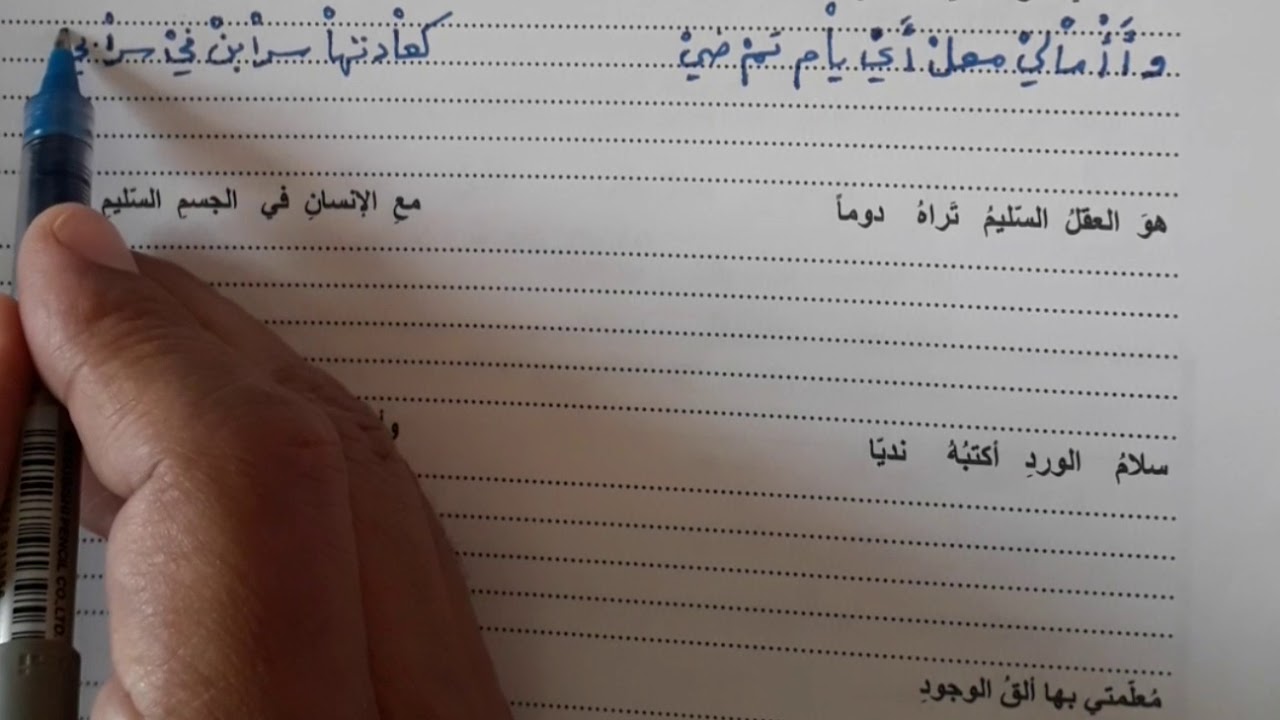 وَأَأْمَاْلِيْ معلْ أَيْ يَاْمِ تَمْ ضِيْ كعاْدتهاْ سراْبنْ فيْ سراْبيْ
هوَ العقلُ السّليمُ تَراهُ دوماً معِ الإنسانِ في الجسمِ السّليمِ
سلامُ الوردِ أكتبُهُ نديّا
مُعلّمتي بها ألقُ الوجودِ